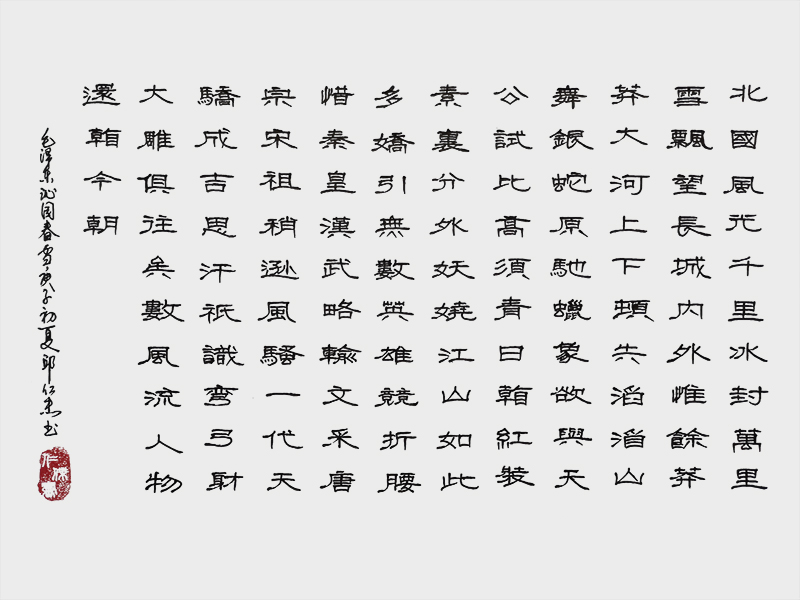 北國風光千里冰封萬里
雪飄望長城內外惟餘莽
莽大河上下頓失滔滔山
舞銀蛇原馳蠟象欲與天
公試比高須青日看紅裝
素裹分外妖嬈江山如此
多嬌引無數英雄競折腰
惜秦皇漢武略輸文采唐
宗宋祖稍遜風騷一代天
驕成吉思汗祇識彎弓射
大雕俱往矣數風流人物
還看今朝
毛澤東沁园春雪庚子初夏邱仁杰书